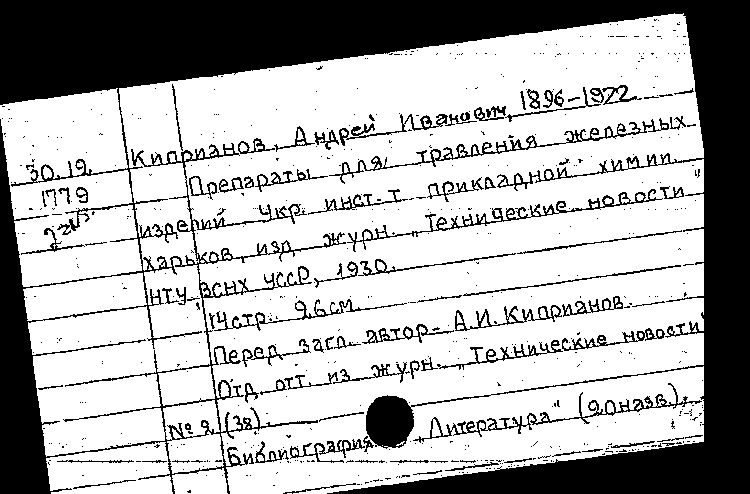 30.19. Киприанов, Андрей Иванович, 1896-1972
1779 Препараты для травления железных
изделий Укр. инст-т прикладной химии.
Харьков, изд. журн. „Технические новости"
НТУ ВСНХ УССР, 1930.
14 стр. 26 см.
Перед загл. автор- А.И. Киприанов.
Отд. отт. из журн. „Технические новости"
№ 2 (38).
Библиография „Литература" (20 назв.).